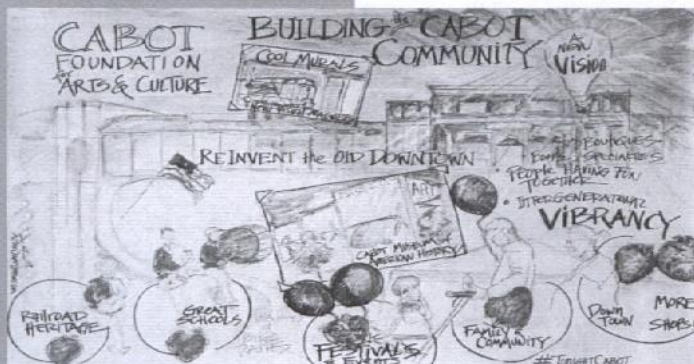 CABOT
FOUNDATION
for
ARTS & CULTURE
BUILDING the CABOT
COMMUNITY
A
NEW
VISION
COOL MURALS
REINVENT the OLD DOWNTOWN
BOUTIQUES
PEOPLE HAVING FUN
TOGETHER
INTERGENERATIONAL
VIBRANCY
ART
CABOT MUSEUM of
AMERICAN HISTORY
RAILROAD
HERITAGE
GREAT
SCHOOLS
FESTIVALS
FAMILY &
COMMUNITY
DOWN
TOWN
MORE
SHOPS